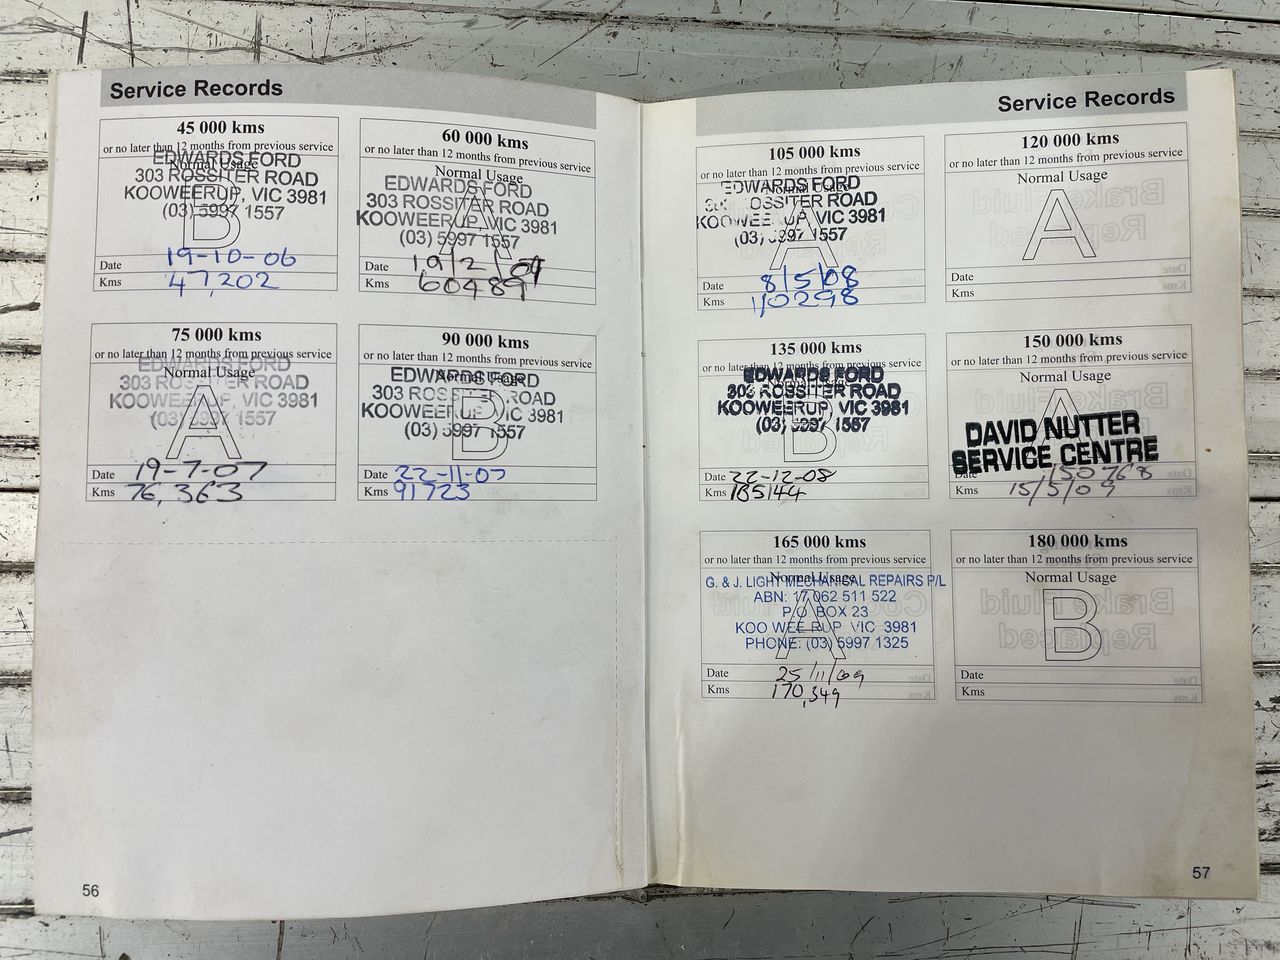 Service Records
45 000 kms
or no later than 12 months from previous service
Normal Usage
EDWARDS FORD
303 ROSSITER ROAD
KOOWEERUP, VIC 3981
(03) 5997 1557
B
Date 19-10-06
Kms 47,202
60 000 kms
or no later than 12 months from previous service
Normal Usage
EDWARDS FORD
303 ROSSITER ROAD
KOOWEERUP, VIC 3981
(03) 5997 1557
A
Date 19/2/07
Kms 60489
75 000 kms
or no later than 12 months from previous service
EDWARDS FORD
Normal Usage
303 ROSSITER ROAD
KOOWEERUP, VIC 3981
(03) 5997 1557
A
Date 19-7-07
Kms 76,363
90 000 kms
or no later than 12 months from previous service
Normal Usage
EDWARDS FORD
303 ROSSITER ROAD
KOOWEERUP, VIC 3981
(03) 5997 1557
B
Date 22-11-07
Kms 91723
56
Service Records
105 000 kms
or no later than 12 months from previous service
Normal Usage
EDWARDS FORD
303 ROSSITER ROAD
KOOWEERUP, VIC 3981
(03) 5997 1557
A
Date 8/5/08
Kms 110298
120 000 kms
or no later than 12 months from previous service
Normal Usage
A
Date
Kms
135 000 kms
or no later than 12 months from previous service
Normal Usage
EDWARDS FORD
303 ROSSITER ROAD
KOOWEERUP, VIC 3981
(03) 5997 1557
B
Date 22-12-08
Kms 135144
150 000 kms
or no later than 12 months from previous service
Normal Usage
A
DAVID NUTTER
SERVICE CENTRE
Date 150768
Kms 15/5/09
165 000 kms
or no later than 12 months from previous service
Normal Usage
G. & J. LIGHT MECHANICAL REPAIRS P/L
ABN: 17 062 511 522
P.O. BOX 23
KOO WEE RUP VIC 3981
PHONE: (03) 5997 1325
A
Date 25/11/09
Kms 170,349
180 000 kms
or no later than 12 months from previous service
Normal Usage
B
Date
Kms
57